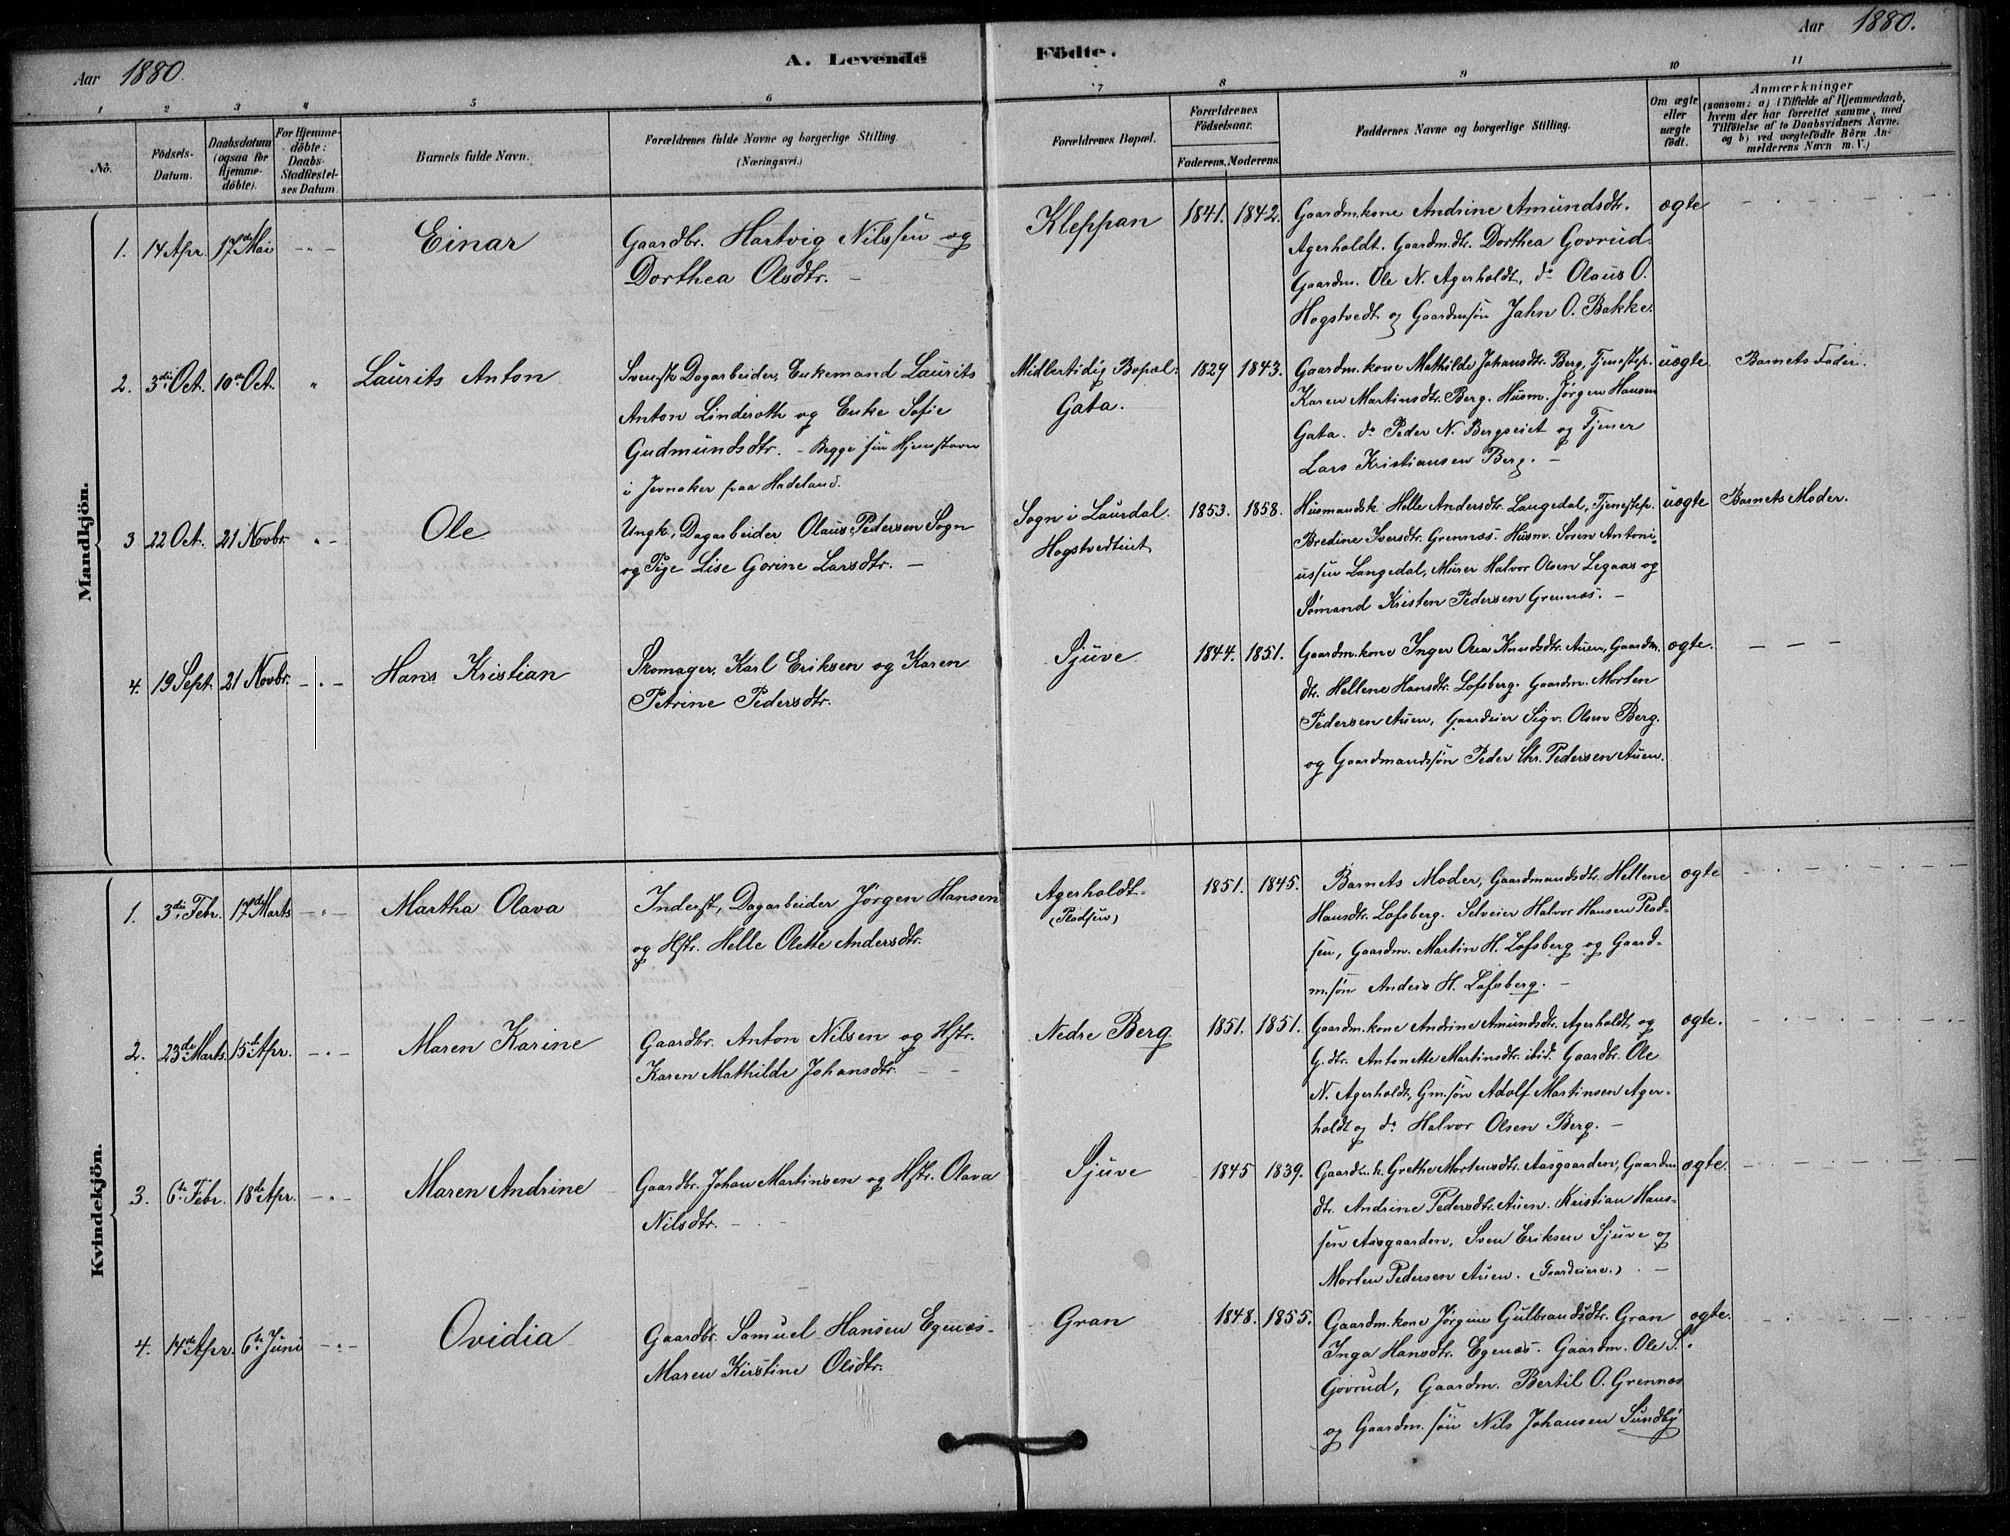 Aar 1880.
A. Levende Födte.
Aar 1880.
1 2 3 4 5 6 7 8 9 10 11
No.
Födsels-
Datum.
Daabsdatum
(ogsaa for
Hjemme-
döbte).
For Hjemme-
döbte:
Daabs-
Stadfæstel-
ses Datum.
Barnets fulde Navn.
Forældrenes fulde Navne og borgerlige Stilling.
(Næringsvei.)
Forældrenes Bopæl.
Forældrenes
Födselsaar.
Faderens. Moderens.
Faddernes Navne og borgerlige Stilling.
Om ægte
eller
uægte
født.
Anmærkninger
(saasom: a) i Tilfælde af Hjemmedaab,
hvem der har forrettet samme, med
Tilföielse af to Daabsvidners Navne,
og b) ved uægtefödte Börn An-
melderens Navn m. V.)
Mandkjön.
1. 14 Apr. 17de Mai - " - Einar
Gaardbr. Hartvig Nilssen og
Dorthea Olsdtr. -
Kleppan 1841. 1842.
Gaardm.kone Andrine Amundsdtr.
Agerholdt. Gaardm.dtr. Dorthea Govrud.
Gaardm. Ole N. Agerholdt, do Olaus O.
Hogstvedt og Gaardmsön Jahn O. Bakke.
ægte
2. 3die Oct. 10de Oct. " Laurits Anton
Svensk Dagarbeider, Enkemand Laurits
Anton Linderoth og Enke Sofie
Gudmundsdtr. - Begge sin Hjemstavn
i Jevnaker paa Hadeland.
Midlertidig Bopæl:
Gata.
1829 1843.
Gaardm.kone Mathilde Johansdtr. Berg, Tjenestep.
Karen Martinsdtr. Berg. Husm. Jørgen Hansen
Gata. do Peder N. Bergseiet og Tjener
Lars Kristiansen Berg. -
uægte Barnets Fader.
3 22 Oct. 21 Novbr. " - Ole
Ungk. Dagarbeider Olaus Pedersen Sogn
og Pige Lise Gorine Larsdtr. -
Sogn i Laurdal.
Hogstvedteiet
1853. 1858.
Husmandsk. Helle Andersdtr. Langedal, Tjenestep.
Bredine Iversdtr. Grennæs. Husm. Soren Antoni-
ussen Langedal, Murer Halvor Olsen Legaas og
Sømand Kristen Pedersen Grennæs. -
uægte Barnets Moder.
4. 19 Sept. 21 Novbr. - " - Hans Kristian
Skomager, Karl Eriksen og Karen
Petrine Pedersdtr.
Sjuve 1844. 1851.
Gaardm.kone Inger Olea Knudsdtr. Auen, Gaardm.
dtr. Hellene Hansdtr. Lofsberg. Gaardm. Morten
Pedersen Auen, Gaardeier Sigv. Olsen Berg.
og Gaardmandssön Peder Chr. Pedersen Auen.
ægte. - - -
Kvindekjön.
1. 3die Febr. 17de Marts - " - Martha Olava
Inderst, Dagarbeider Jørgen Hansen
og Hstr. Helle Olette Andersdtr.
Agerholdt.
(Plodsen)
1851. 1845.
Barnets Moder, Gaardmandsdtr. Hellene
Hansdtr. Lofsberg. Selveier Halvor Hansen Plod-
sen, Gaardm. Martin H. Lofsberg og Gaard-
m.søn Anders H. Lofsberg. -
ægte
2. 23de Marts. 15de Apr. - " - Maren Karine
Gaardbr. Anton Nilsen og Hstr.
Karen Mathilde Johansdtr. - -
Nedre Berg 1851. 1851.
Gaardm.kone Andrine Amundsdtr. Agerholdt og
G.dtr. Antonette Martinsdtr. ibid. Gaardbr. Ole
N. Agerholdt, Gm.søn Adolf Martinsen Ager-
holdt og do Halvor Olsen Berg. -
ægte.
3. 6te Febr. 18de Apr. - " - Maren Andrine
Gaardbr. Johan Martinsen og Hstr. Olava
Nilsdtr. -
Sjuve 1845 1839.
Gaardm.k. Grethe Mortensdtr. Aasgaarden, Gaardm.
dtr. Andrine Pedersdtr. Auen. Kristian Hans-
sen Aasgaarden, Sven Eriksen Sjuve og
Morten Pedersen Auen. (Gaardeiere.) -
ægte.
4. 14de Apr. 6te Juni - " - Ovidia
Gaardbr. Samuel Hansen Egenæs-
Maren Kirstine Olsdtr.
Gran 1848. 1855.
Gaardm.kone Jørgine Gulbrandsdtr. Gran
Inga Hansdtr. Egenæs. Gaardm. Ole S.
Govrud, Gaardm. Bertil O. Grennæs
og Gaardm. sön Nils Johansen Sundby
ægte.